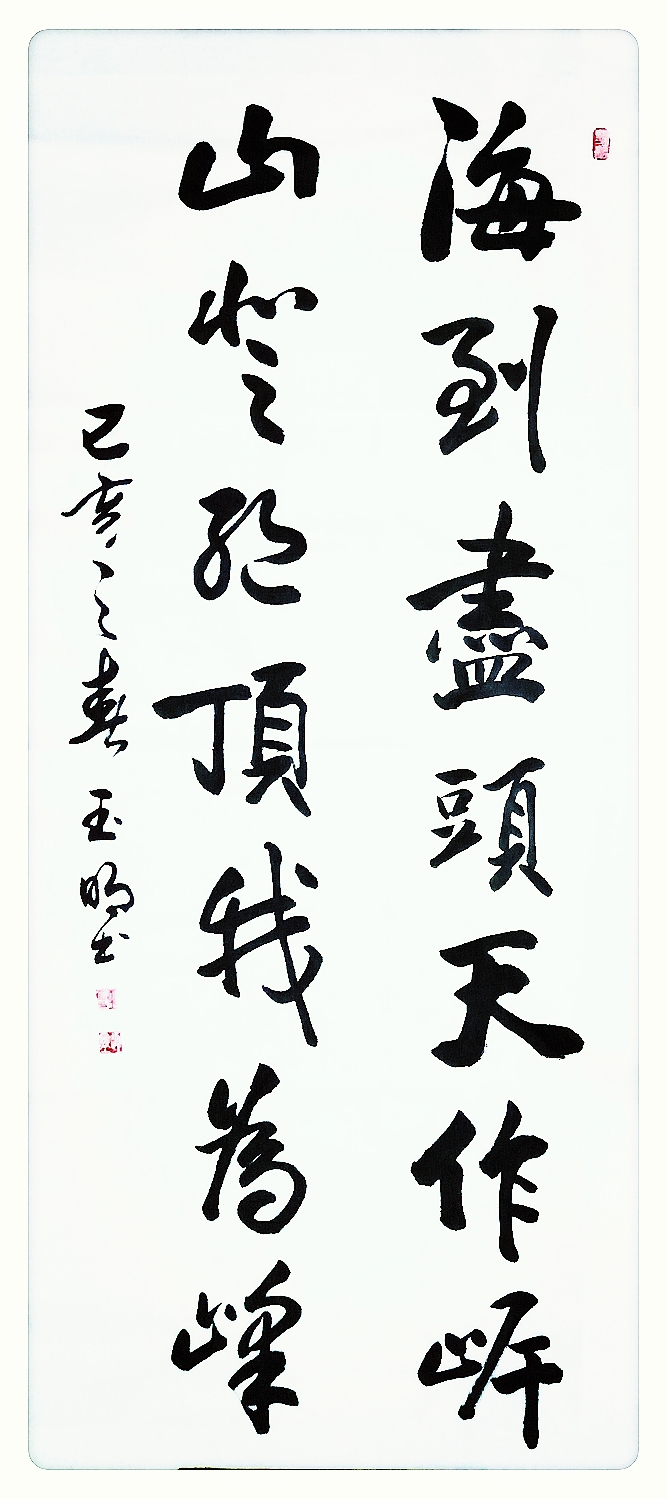 海到盡頭天作岸
山登絕頂我為峰
己亥之春玉明書